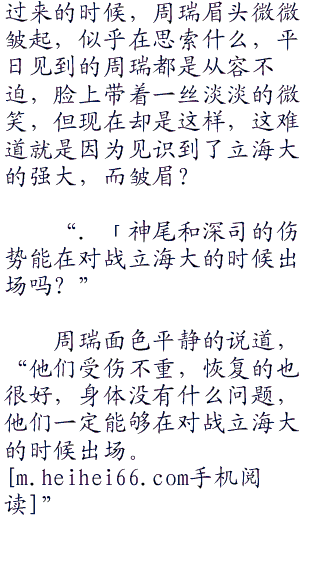 过来的时候，周瑞眉头微微
皱起，似乎在思索什么，平
日见到的周瑞都是从容不
迫，脸上带着一丝淡淡的微
笑，但现在却是这样，这难
道就是因为见识到了立海大
的强大，而皱眉？
“．「神尾和深司的伤
势能在对战立海大的时候出
场吗？”
周瑞面色平静的说道，
“他们受伤不重，恢复的也
很好，身体没有什么问题，
他们一定能够在对战立海大
的时候出场。
[m.heihei66.com手机阅
读]”